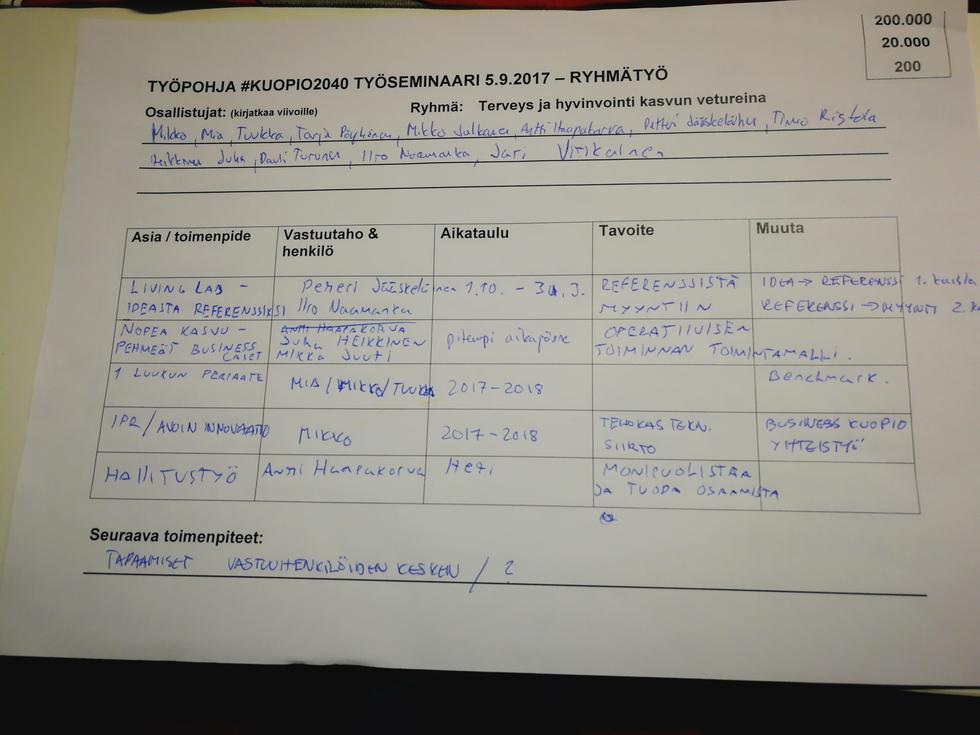 200.000
20.000
200
TYÖPOHJA #KUOPIO2040 TYÖSEMINAARI 5.9.2017 – RYHMÄTYÖ
Osallistujat: (kirjatkaa viivoille) Ryhmä: Terveys ja hyvinvointi kasvun vetureina
Mikko, Mia, Tuukka, Tarja Pöyhönen, Mikko Jalkanen, Antti Haapakorva, Petteri Jääskeläinen, Timo Ristola
Heikkinen Juha, Pauli Turunen, Ilro Naamanka, Jari Vitikainen
Asia / toimenpide Vastuutaho & henkilö Aikataulu Tavoite Muuta
LIVING LAB – Petteri Jääskeläinen 1.10. – REFERENSSISTÄ IDEA → REFERENSSI 1.
IDEASTA REFERENSSIKSI Ilro Naamanka MYYNTIIN REFERENSSI → MYYNTI 2.
NOPEA KASVU – ANTTI HAAPAKORVA OPERATIIVISEN
PEHMEÄT BUSINESS Juha HEIKKINEN pitempi aikajänne TOIMINNAN TOIMINTAMALLI.
CASET MIKKO Juuti
1 LUUKUN PERIAATE MIA / MIKKO / TUUKKA 2017–2018 Benchmark.
IPR / AVOIN INNOVAATIO MIKKO 2017–2018 TEHOKAS TEKN. BUSINESS KUOPIO
SIIRTO YHTEISTYÖ
HALLITUSTYÖ Antti Haapakorva Heti MONIPUOLISTAA
JA TUODA OSAAMISTA
Seuraava toimenpiteet:
TAPAAMISET VASTUUHENKILÖIDEN KESKEN / ?